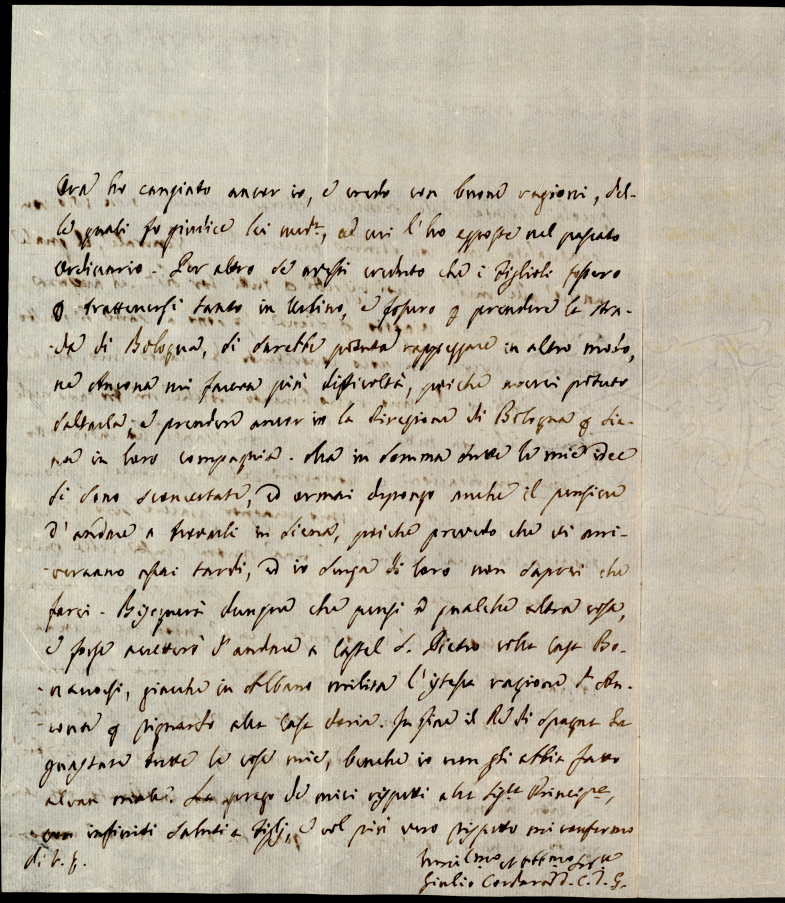 Ora ho cangiato ancor io, e credo con buone ragioni, del-
le quali fo giudice lei med.ª, ad cui l'ho esposte nel passato
Ordinario. Per altro se avessi creduto che i Figlioli fossero
p trattenersi tanto in Urbino, e fossero p prendere la stra-
da di Bologna, si sarebbe potuta rappezzare in altro modo,
ne Ancona mi faceva più difficoltà, poiche avrei potuto
saltarla, e prendere ancor io la direzione di Bologna p Sie-
na in loro compagnia. Ma in somma tutte le mie idee
si sono sconcertate, ed ormai depongo anche il pensiere
d'andare a trovarli in Siena, poiche prevedo che vi arri-
veranno assai tardi, ed io senza di loro non saprei che
farci. Bisognerà dunque che pensi a qualche altra cosa,
e forse accetterò d'andare a Castel S. Pietro colla Casa Bo-
naccorsi, giacche in Albano milita l'istessa ragione d'An-
cona p riguardo alla Casa Doria. In fine il Rè di Spagna ha
guastate tutte le cose mie, benche io non gli abbia fatto
alcun male. La prego de miei rispetti alla Sig.ra Principessa,
con infiniti saluti a Figlj, e col più vero rispetto mi confermo
di V. E.
Umil.mo Obb.mo Ser.e
Giulio Cordara D. C. D. G.